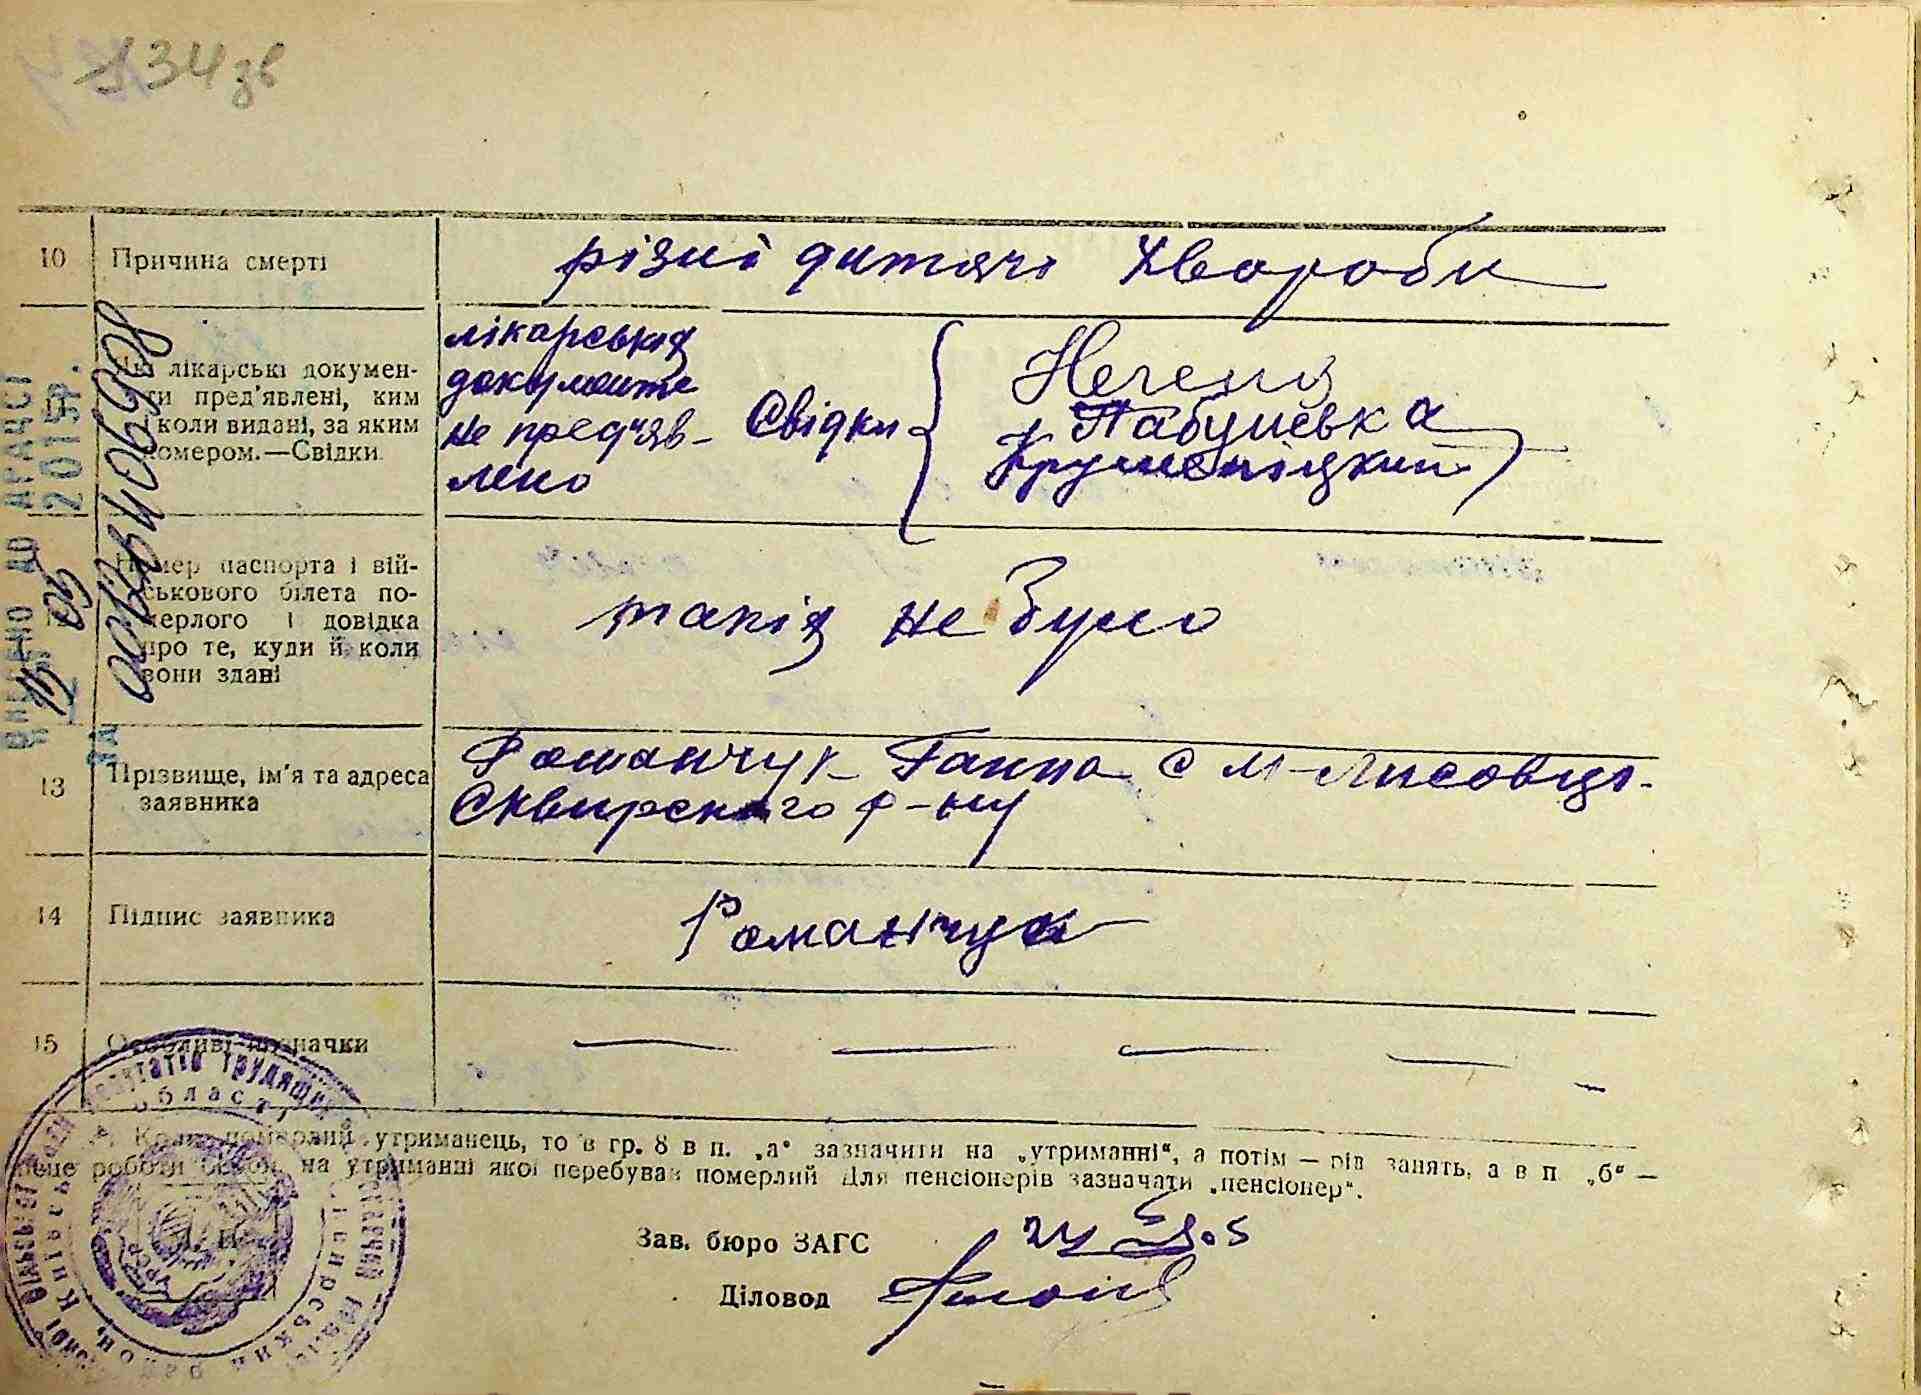 134 зв
10 Причина смерті різні дитячі хвороби
Які лікарські докумен-
ти пред'явлені, ким
і коли видані, за яким
номером.—Свідки.
лікарських
документів
не пред'яв-
лено
Свідки
Нечепа
Крушеніцький
12 Номер паспорта і вій-
ськового білета по-
мерлого і довідка
про те, куди й коли
вони здані
таких не було
13 Прізвище, ім'я та адреса
заявника
Романчук Ганна с М-Лисовці.
Сквирского р-ну
14 Підпис заявника Романчук
15 Особливі позначки — — — — —
Коли померлий утриманець, то в гр. 8 в п. „а“ зазначити на „утриманні“, а потім — рід занять, а в п „б“ —
роботи особи, на утриманні якої перебував померлий Для пенсіонерів зазначати „пенсіонер“.
Зав. бюро ЗАГС
Діловод
ВНЕСЕНО ДО ДРАЦСГ
2015р.
ЗА
депутатів трудящих
область
район